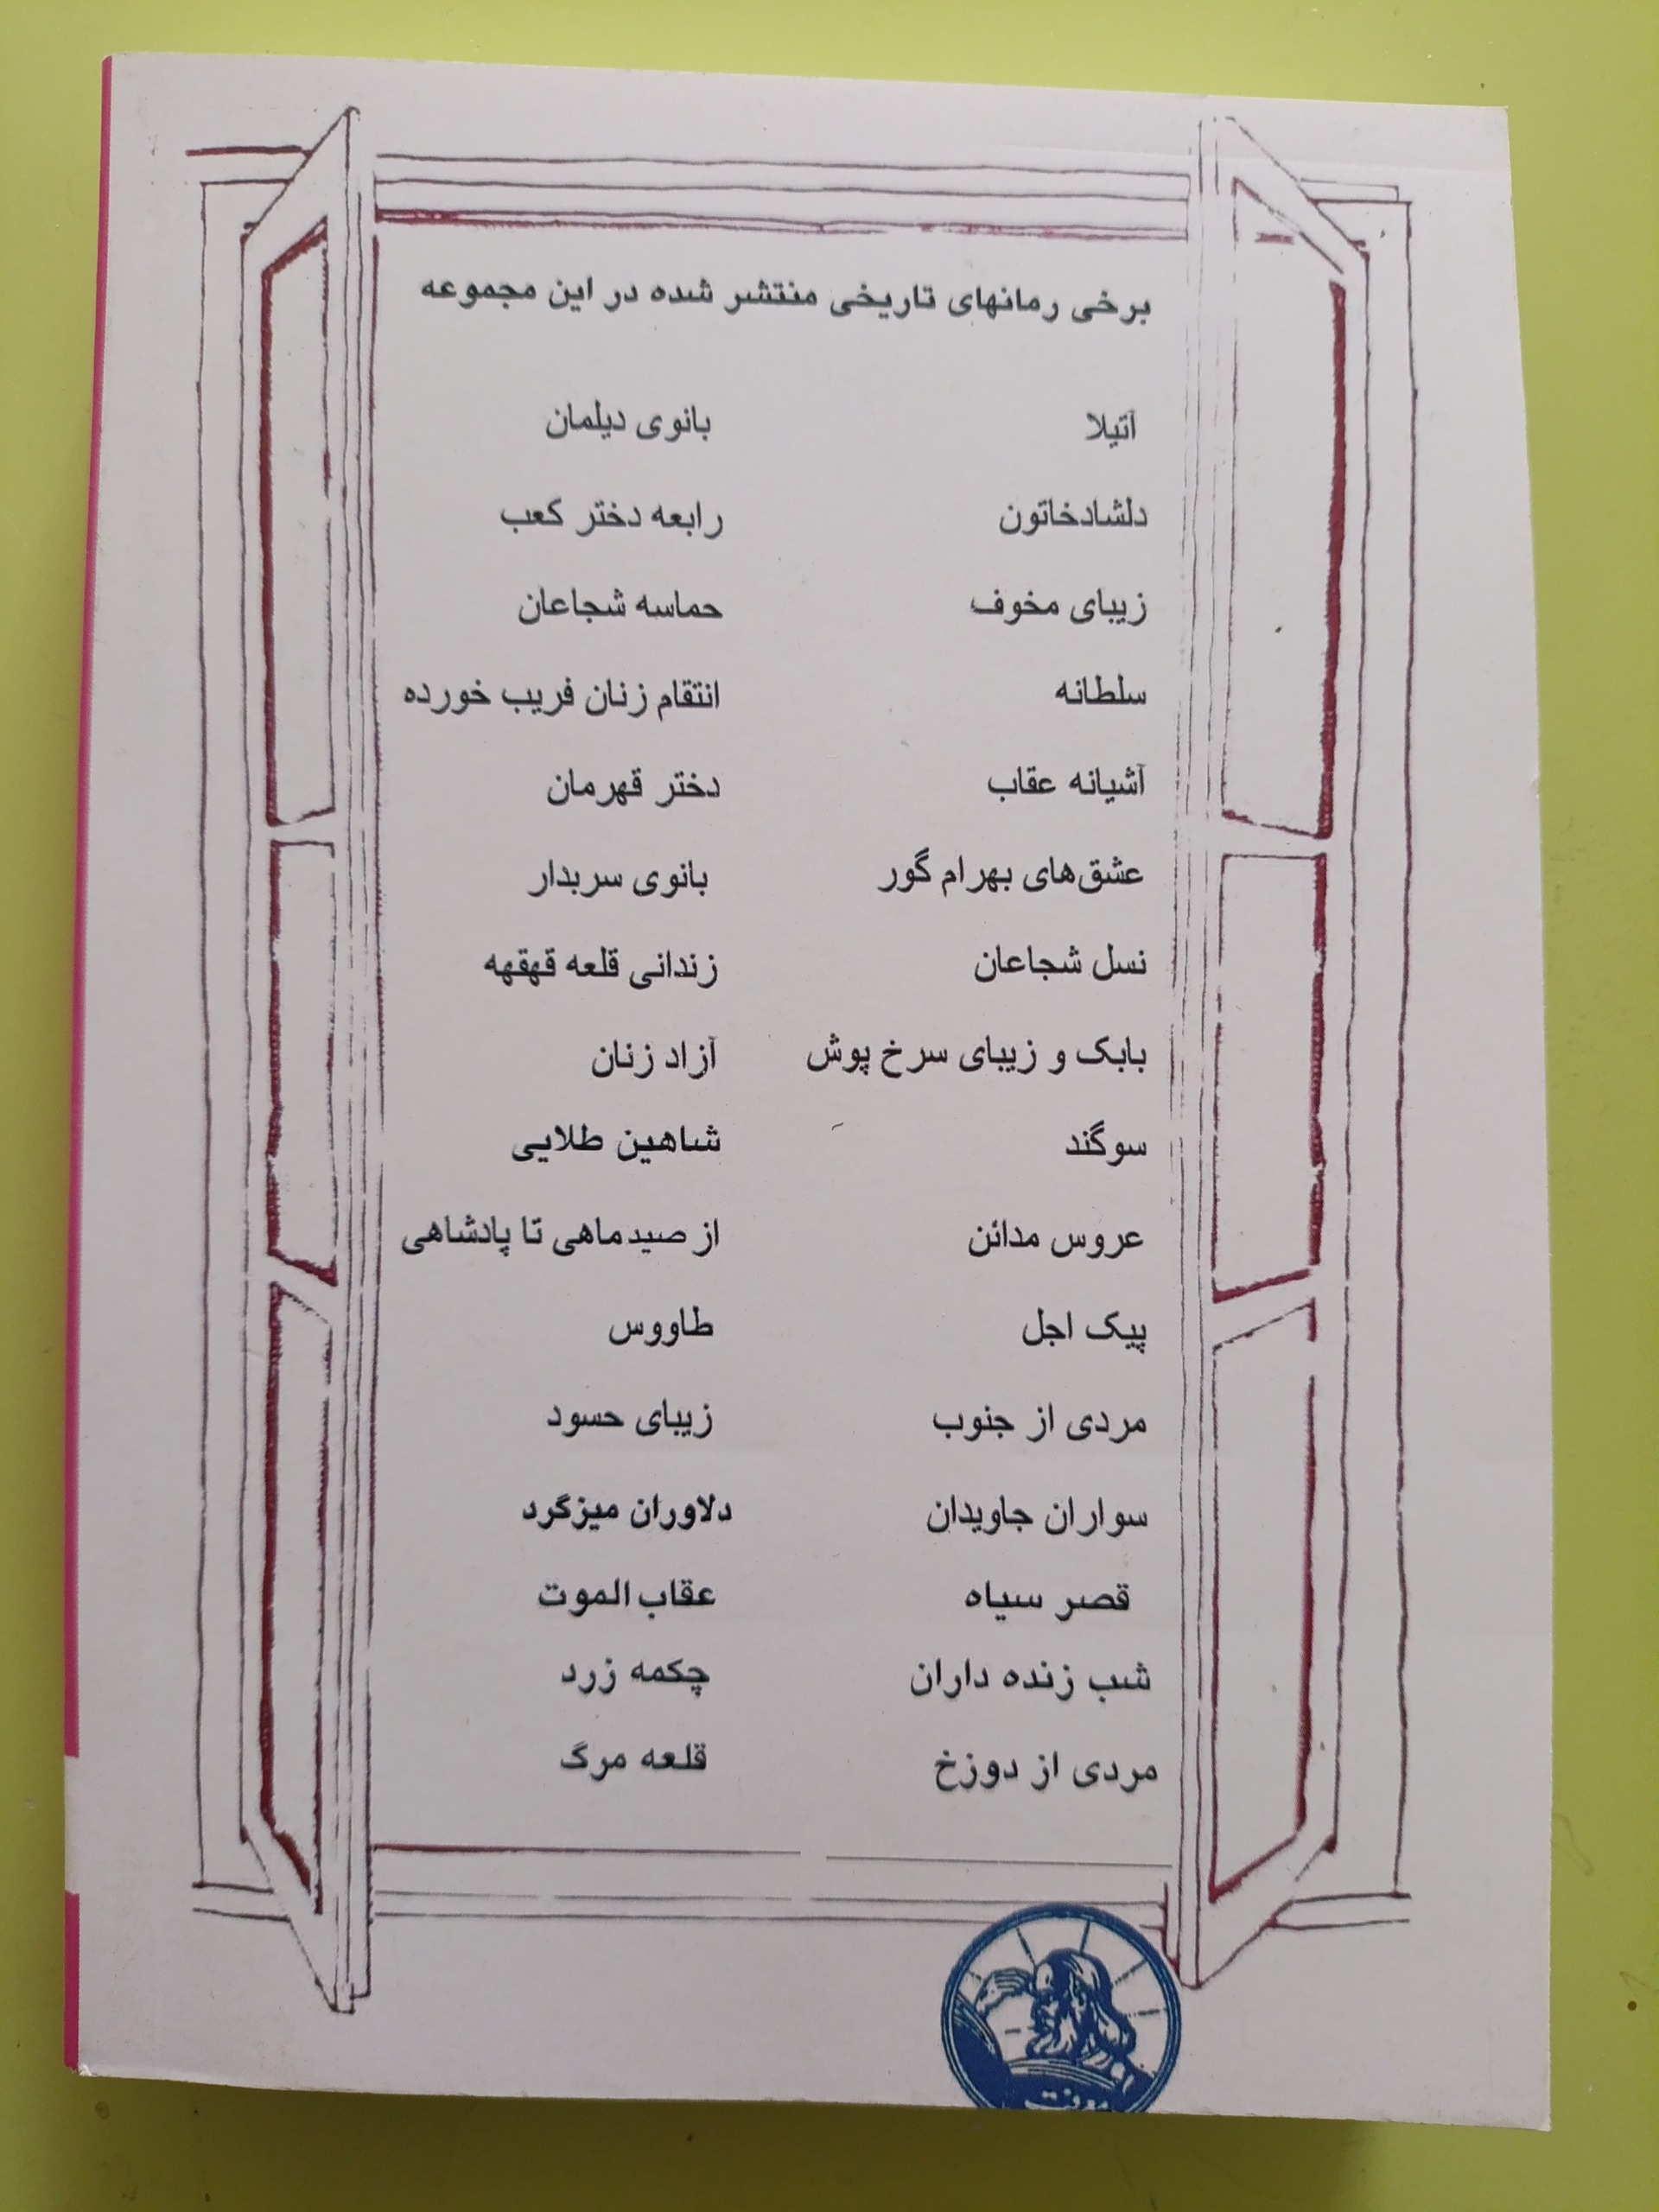 برخی رمانهای تاریخی منتشر شده در این مجموعه
آتیلا
دلشادخاتون
زیبای مخوف
سلطانه
آشیانه عقاب
عشق‌های بهرام گور
نسل شجاعان
بابک و زیبای سرخ پوش
سوگند
عروس مدائن
پیک اجل
مردی از جنوب
سواران جاویدان
قصر سیاه
شب زنده داران
مردی از دوزخ
بانوی دیلمان
رابعه دختر کعب
حماسه شجاعان
انتقام زنان فریب خورده
دختر قهرمان
بانوی سربدار
زندانی قلعه قهقهه
آزاد زنان
شاهین طلایی
از صیدماهی تا پادشاهی
طاووس
زیبای حسود
دلاوران میزگرد
عقاب الموت
چکمه زرد
قلعه مرگ